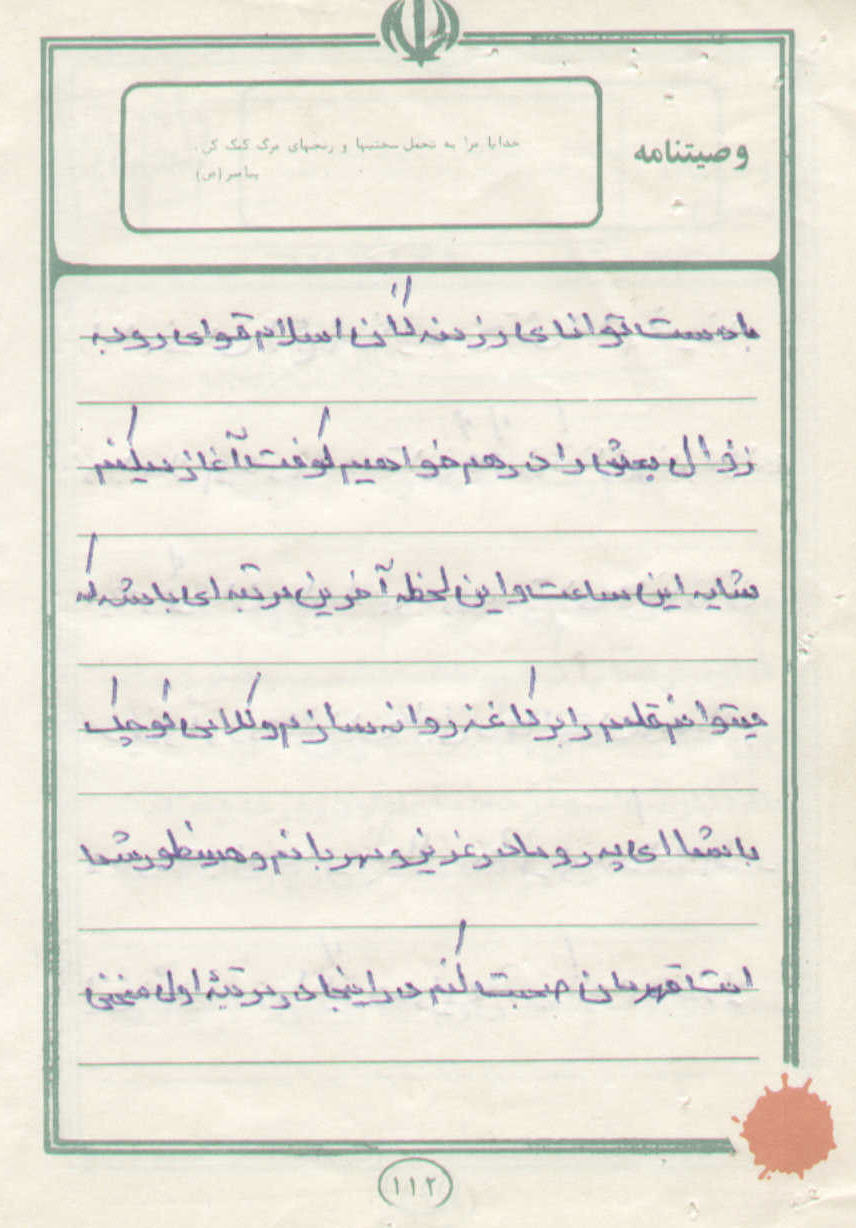 وصیتنامه
خدایا مرا به تحمل سختیها و رنجهای مرگ کمک کن.
پیامبر(ص)
بادست توانای رزمندگان اسلام قوای روبه
زوال بعثی را درهم خواهیم کوفت آغاز میکنم
شاید این ساعت واین لحظه آخرین مرتبه ای باشد که
میتوانم قلمم را بر کاغذ روانه سازم و کلامی کوچک
باشما ای پدر و مادر عزیز و مهربانم و همینطور شما
امت قهرمان صحبت کنم در اینجا در مرتبهٔ اول سخنی
۱۱۲